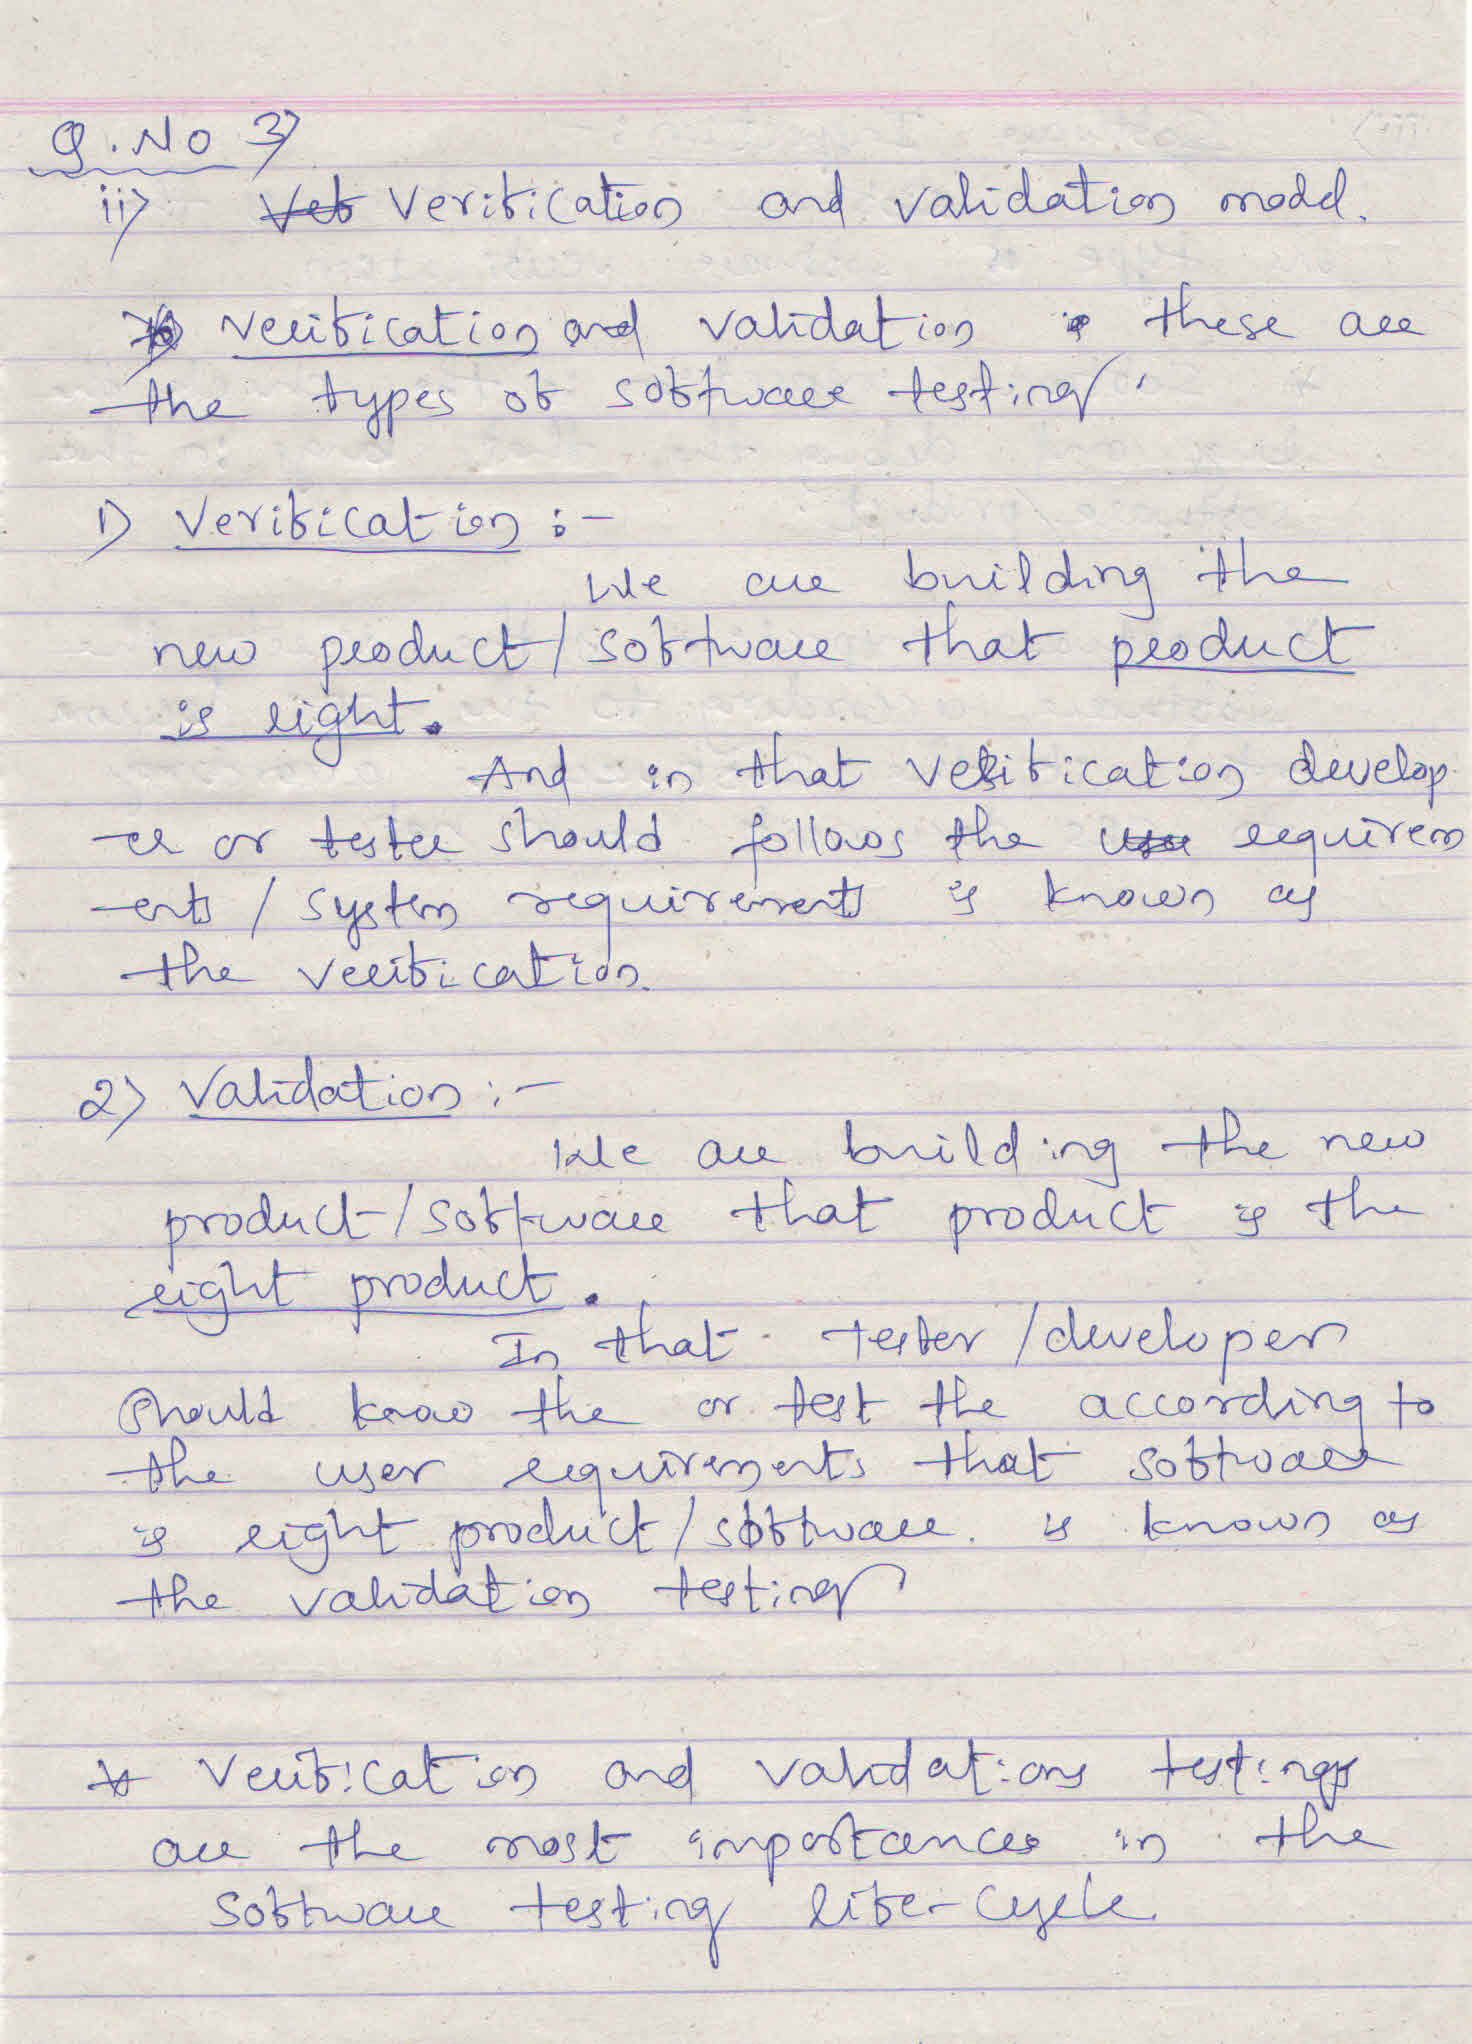 Q. No 3)
ii) Verification and validation model.
Verification and validation these are
the types of software testing.
1) Verification :-
We are building the
new product/software that product
is right.
And in that verification develop
-er or tester should follows the requirem
-ents / system requirements is known as
the verification.
2) Validation :-
We are building the new
product/software that product is the
right product.
In that tester/developer
should know the or test the according to
the user requirements that software
is right product/software. is known as
the validation testing
* Verification and validations testings
are the most importances in the
software testing life-cycle.